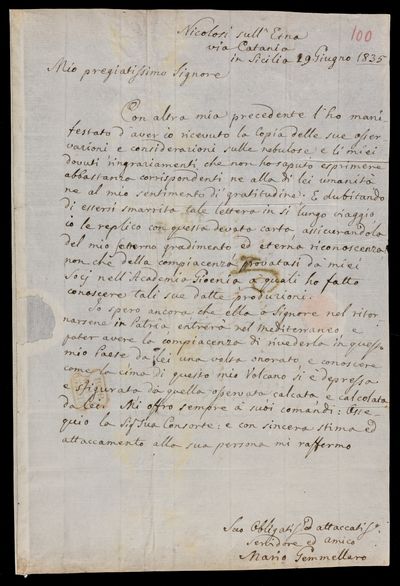 Nicolosi sull'Etna
100
via Catania
in Sicilia 29 Giugno 1835
Mio pregiatissimo Signore
Con altra mia precedente l'ho mani
festato d'aver io ricevuto la copia delle sue osser
vazioni e considerazioni sulle nebulose e li miei
dovuti ringraziamenti che non ho saputo esprimere
abbastanza corrispondenti ne alla di lei umanità
ne al mio sentimento di gratitudine: E dubitando
di essersi smarrita tale lettera in si lungo viaggio
io le replico con questa devota carta assicurandola
del mio eterno gradimento ed eterna riconoscenza
non che della compiacenza provatasi da miei
Socj nell'Academia Gioenia a quali ho fatto
conoscere tali sue dotte produzioni.
Io spero ancora che ella o Signore nel ritor
narsene in Patria entrerà nel Mediterraneo, e
poter avere la compiacenza di rivederla in questo
mio Paese da lei una volta onorato e conoscere
come la cima di questo mio Volcano si è depressa
e sfigurata da quella osservata calcata e calcolata
da lei: Mi offro sempre a suoi comandi: Osse
quio la Sig. Sua Consorte: e con sincera stima ed
attaccamento alla sua persona mi raffermo
Suo Obligatis. ed attaccatis.
servidore ed amico
Mario Gemmellaro